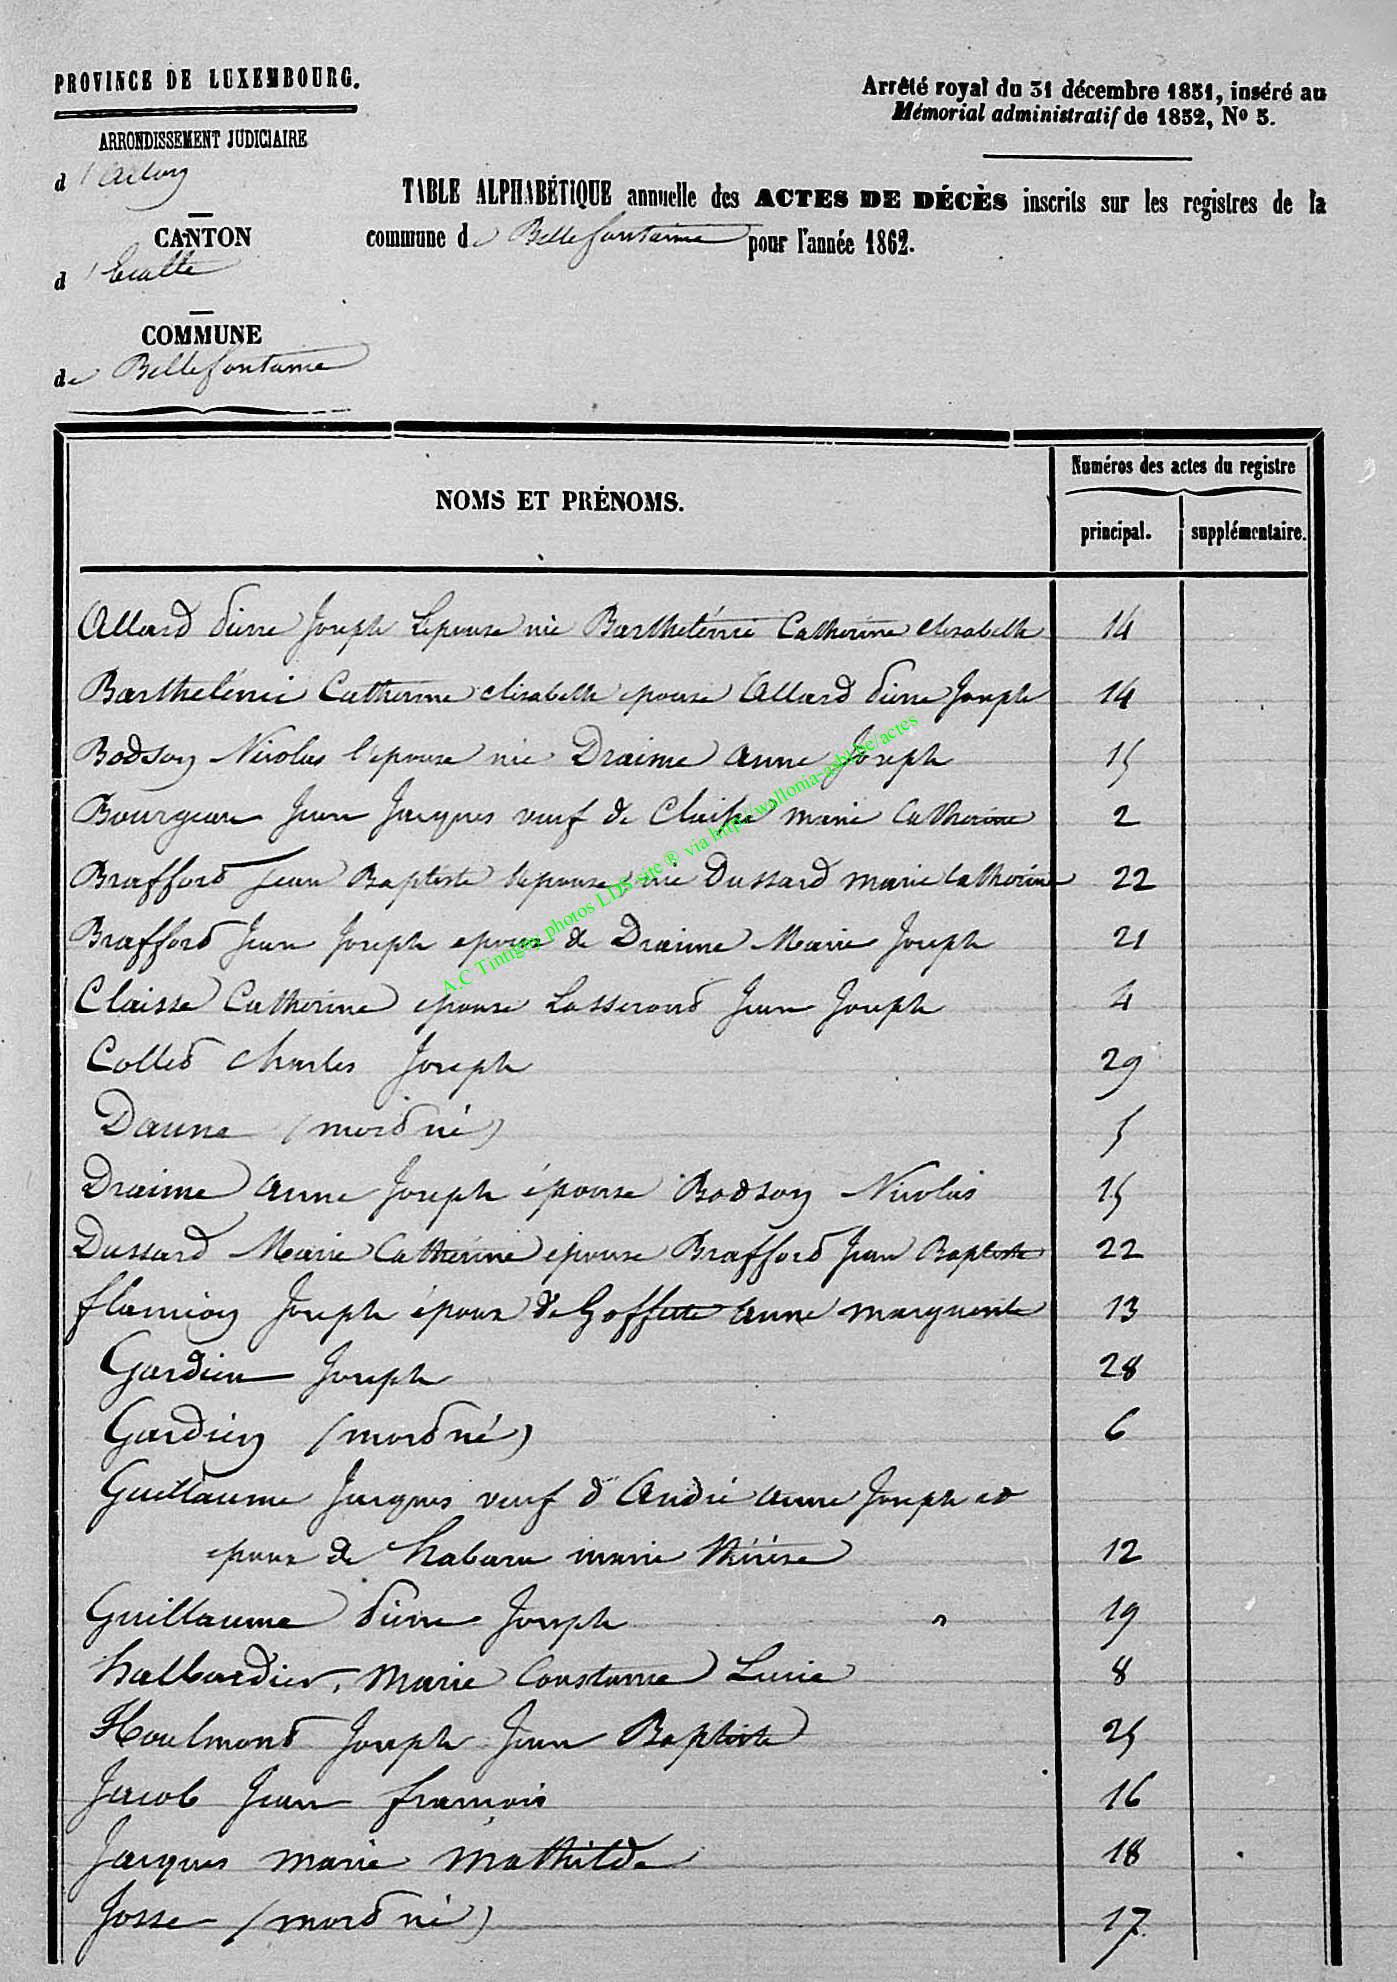 PROVINCE DE LUXEMBOURG.
Arrêté royal du 31 décembre 1851, inséré au
Mémorial administratif de 1852, Nº 5.
ARRONDISSEMENT JUDICIAIRE
d'Arlon
TABLE ALPHABÉTIQUE annuelle des ACTES DE DÉCÈS inscrits sur les registres de la
commune de Bellefontaine pour l'année 1862.
CANTON
d'Etalle
COMMUNE
de Bellefontaine
NOMS ET PRÉNOMS.
Numéros des actes du registre
principal. supplémentaire.
Allard Pierre Joseph l'épouse née Barthelémi Catherine elisabeth 14
Barthelémi Catherine elisabeth epouse Allard Pierre Joseph 14
Bodson Nicolas l'epouse née Draime anne Joseph 15
Bourgeau Jean Jacques veuf de Claisse marie Catherine 2
Brafford Jean Baptiste l'epouse née Dussard marie Catherine 22
Brafford Jean Joseph epoux de Draime Marie Joseph 21
Claisse Catherine epouse Jean Joseph 4
Colled charles Joseph 29
Daune (mord né) 5
Draime anne Joseph épouse Bodson Nicolas 15
Dussard Marie Catherine epouse Brafford Jean Baptiste 22
flamion Joseph époux de Goffette anne marguerite 13
Gardien Joseph 28
Gardien (mord né) 6
Guillaume Jacques veuf d'André anne Joseph et
epoux de habaru marie thérèse 12
Guillaume Pierre Joseph 19
halbardier, Marie Constance Lucie 8
Houlmond Joseph Jean Baptiste 25
Jacob Jean françois 16
Jacques marie mathilde 18
Josse (mord né) 17
A.C Tintigny photos LDS site ® via http://wallonia-asbl.be/actes